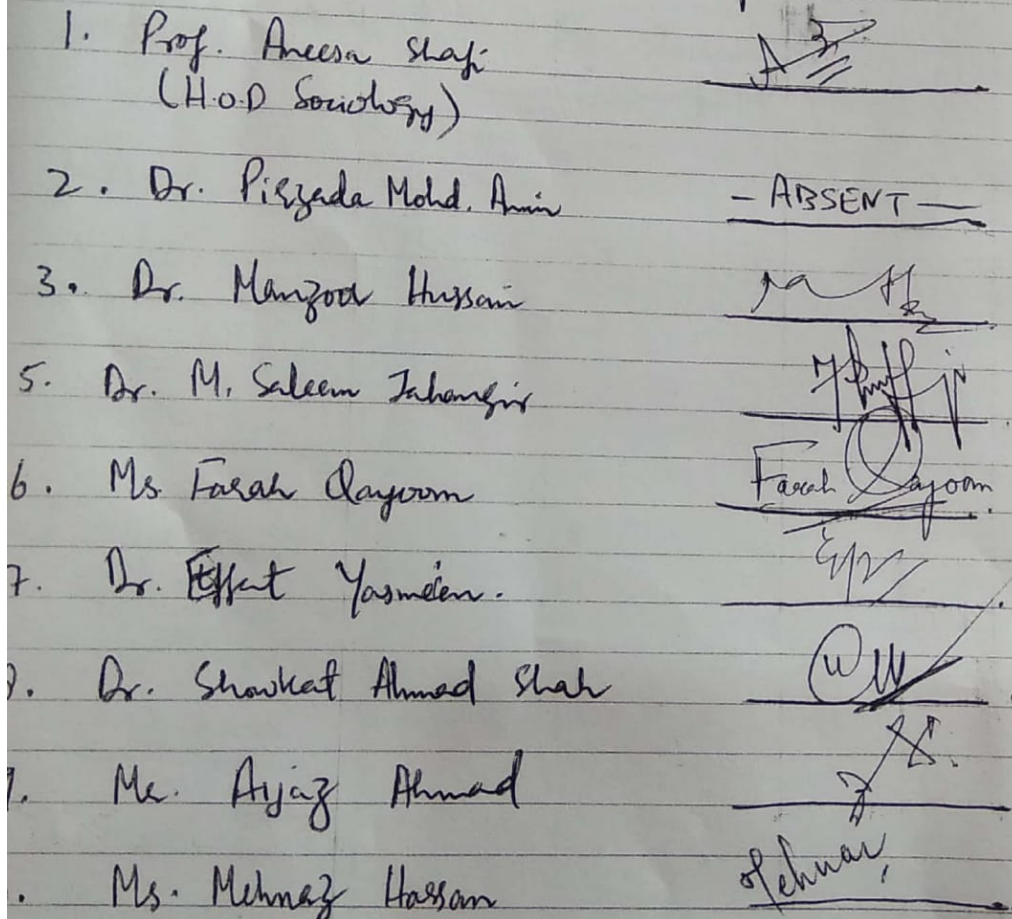 1. Prof. Aneesa Shafi
(H.o.D Sociology)
2. Dr. Pirzada Mohd. Amin - ABSENT -
3. Dr. Manzoor Hussain
5. Dr. M. Saleem Jahangir
6. Ms Farah Qayoom Farah Qayoom
7. Dr. Effat Yasmeen.
Dr. Showkat Ahmad Shah
Mr. Aijaz Ahmad
Ms. Mehnaz Hassan Mehnaz